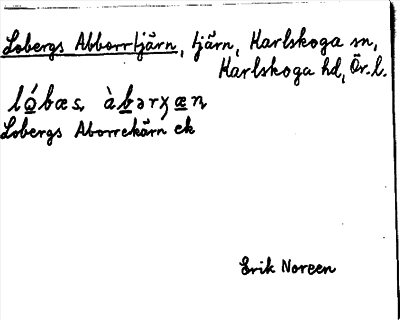 Lobergs Abborrtjärn, tjärn, Karlskoga sn,
Karlskoga hd, Ör. l.
lǫ́bæs, àbərχæn
Lobergs Aborrekärn ek
Erik Noreen